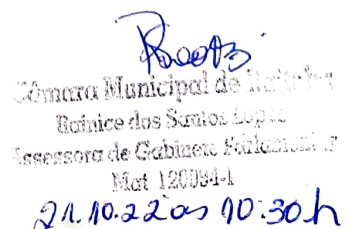 Câmara Municipal de
Rainice dos Santos Lopes
Assessora de Gabinete Parlamentar
Mat 120094-1
21.10.22 as 10:30h